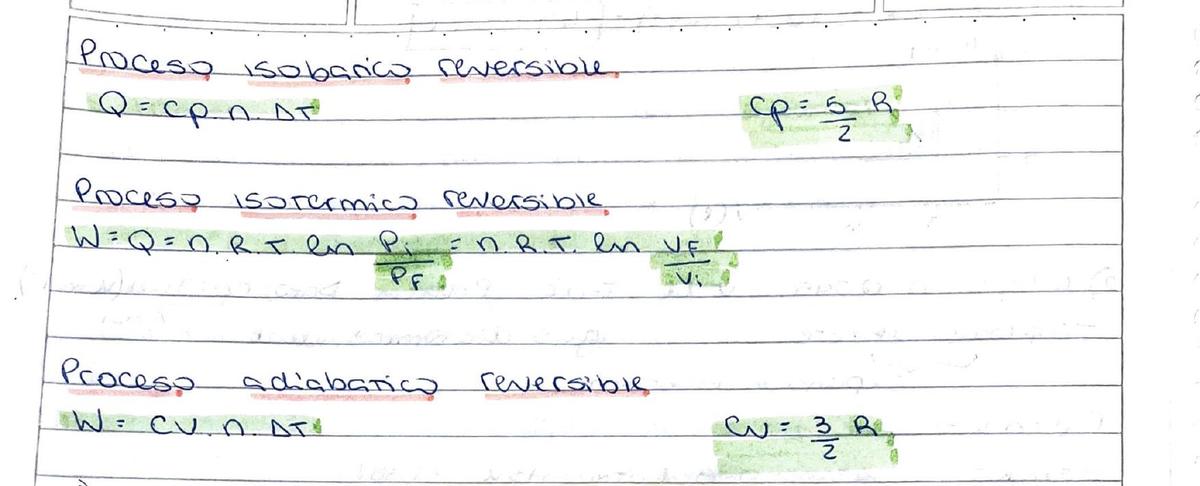 Proceso isobarico reversible
Q = cp . n . ΔT    cp = 5/2 R
Proceso isotermico reversible
W = Q = n . R . T . ln Pi/PF = n . R . T . ln VF/Vi
Proceso adiabatico reversible
W = CV . n . ΔT    CV = 3/2 R